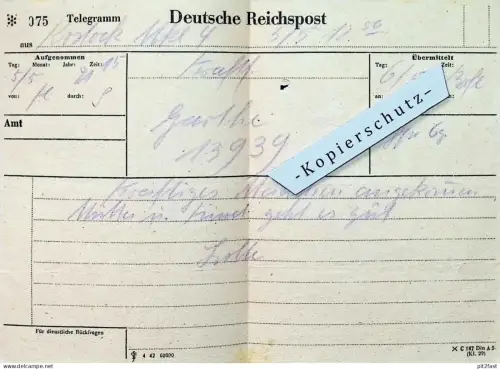 * 075 Telegramm Deutsche Reichspost
aus Rostock
Aufgenommen
Tag: Monat: Jahr: Zeit:
5/5 21 15
von: durch:
Amt
Kraftf.
Garthe
13939
Übermittelt
Tag: Zeit:
an:
-Kopierschutz-
Kräftiges Mädchen angekommen
Mutter u. Kind geht es gut
Lotte
Für dienstliche Rückfragen
4 42 60020
× C 187 Din A 5
(Kl. 29)
www.delcampe.net
pit2fast